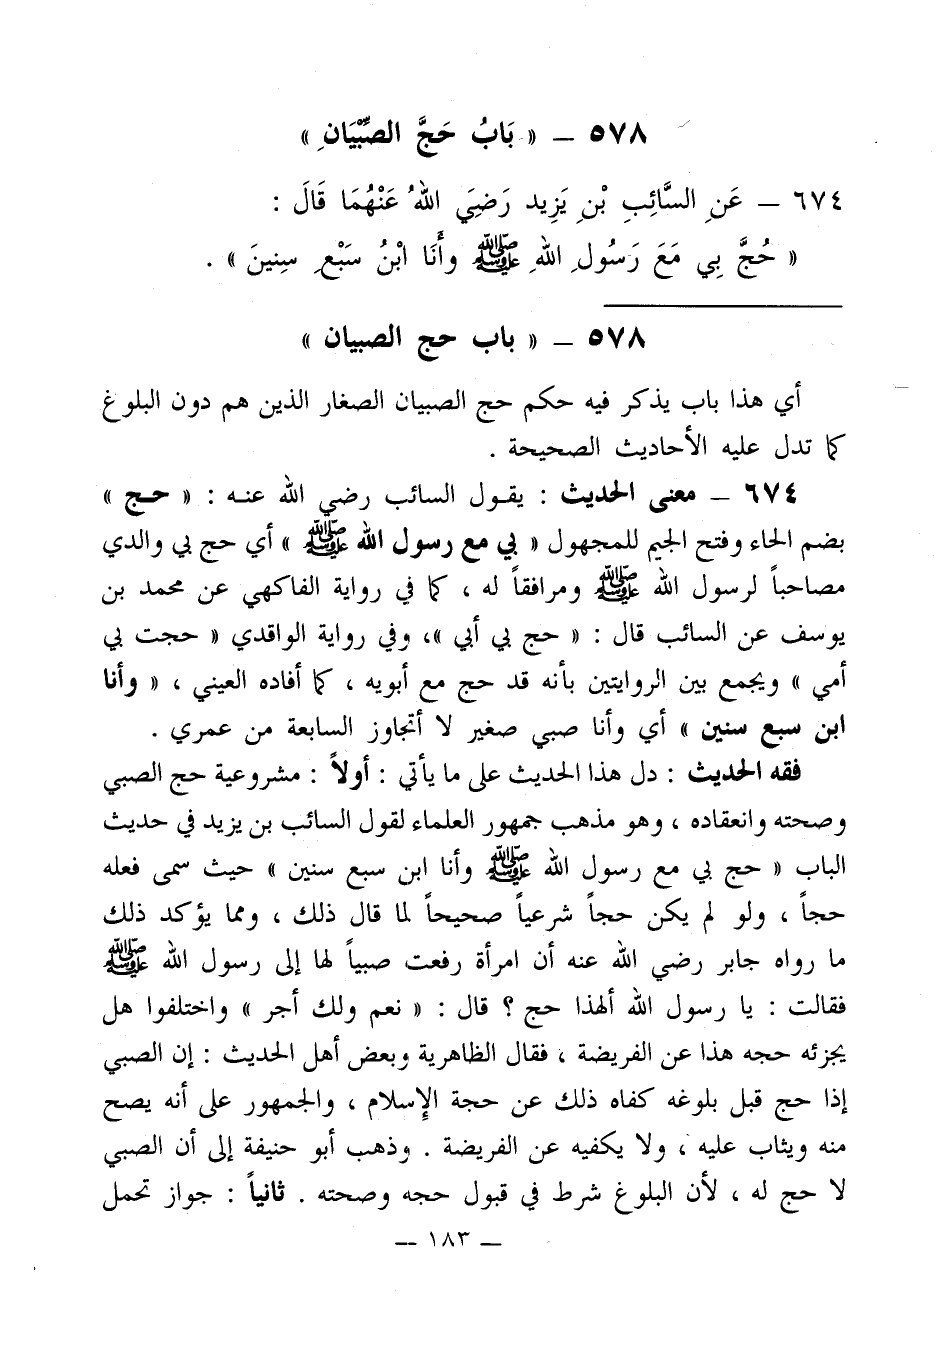 ٥٧٨ – « بَابُ حَجِّ الصِّبْيَانِ »
٦٧٤ – عَنِ السَّائِبِ بْنِ يَزِيد رَضِيَ اللهُ عَنْهُمَا قَالَ :
« حُجَّ بِي مَعَ رَسُولِ اللهِ ﷺ وأَنَا ابْنُ سَبْعِ سِنِينَ » .
٥٧٨ – « باب حج الصبيان »
أي هذا باب يذكر فيه حكم حج الصبيان الصغار الذين هم دون البلوغ
كما تدل عليه الأحاديث الصحيحة .
٦٧٤ – معنى الحديث : يقول السائب رضي الله عنه : « حج »
بضم الحاء وفتح الجيم للمجهول « بي مع رسول الله ﷺ » أي حج بي والدي
مصاحباً لرسول الله ﷺ ومرافقاً له ، كما في رواية الفاكهي عن محمد بن
يوسف عن السائب قال : « حج بي أبي »، وفي رواية الواقدي « حجت بي
أمي » ويجمع بين الروايتين بأنه قد حج مع أبويه ، كما أفاده العيني ، « وأنا
ابن سبع سنين » أي وأنا صبي صغير لا أتجاوز السابعة من عمري .
فقه الحديث : دل هذا الحديث على ما يأتي : أولاً : مشروعية حج الصبي
وصحته وانعقاده ، وهو مذهب جمهور العلماء لقول السائب بن يزيد في حديث
الباب « حج بي مع رسول الله ﷺ وأنا ابن سبع سنين » حيث سمى فعله
حجاً ، ولو لم يكن حجاً شرعياً صحيحاً لما قال ذلك ، ومما يؤكد ذلك
ما رواه جابر رضي الله عنه أن امرأة رفعت صبياً لها إلى رسول الله ﷺ
فقالت : يا رسول الله ألهذا حج ؟ قال : « نعم ولك أجر » واختلفوا هل
يجزئه حجه هذا عن الفريضة ، فقال الظاهرية وبعض أهل الحديث : إن الصبي
إذا حج قبل بلوغه كفاه ذلك عن حجة الإسلام ، والجمهور على أنه يصح
منه ويثاب عليه ، ولا يكفيه عن الفريضة . وذهب أبو حنيفة إلى أن الصبي
لا حج له ، لأن البلوغ شرط في قبول حجه وصحته . ثانياً : جواز تحمل
– ١٨٣ –